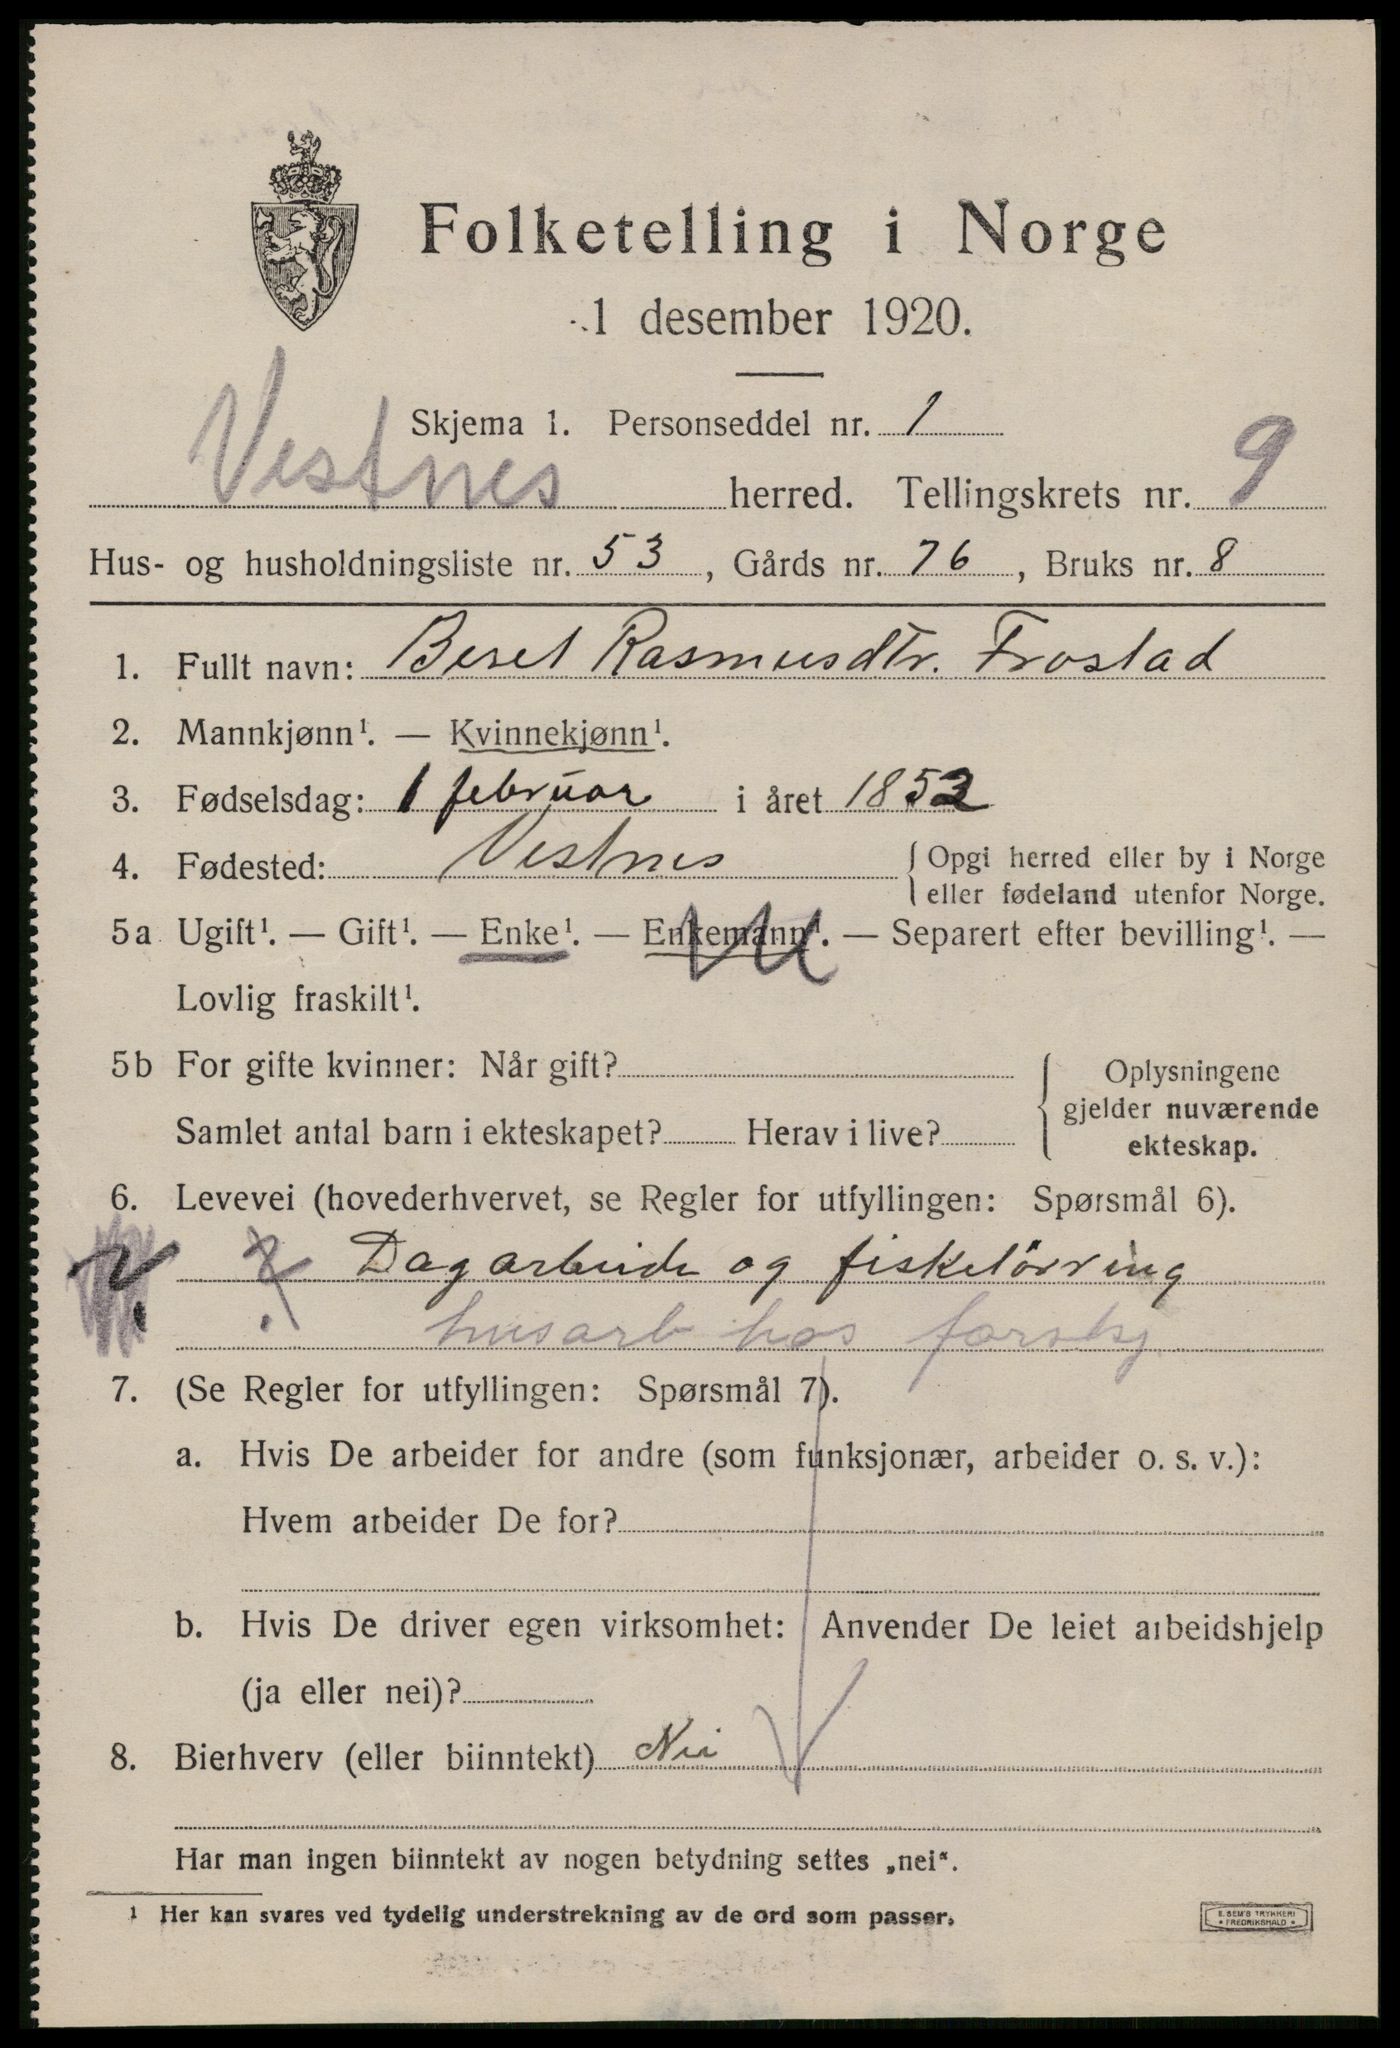 Folketelling i Norge
1 desember 1920.
Skjema 1. Personseddel nr. 1
Vestnes herred. Tellingskrets nr. 9
Hus- og husholdningsliste nr. 53, Gårds nr. 76, Bruks nr. 8
1. Fullt navn: Beret Rasmusdtr. Frostad
2. Mannkjønn¹. — Kvinnekjønn¹.
3. Fødselsdag: 1 februar i året 1852
4. Fødested: Vestnes { Opgi herred eller by i Norge
eller fødeland utenfor Norge.
5a Ugift¹. — Gift¹. — Enke¹. — Enkemann¹. — Separert efter bevilling¹. —
Lovlig fraskilt¹.
5b For gifte kvinner: Når gift?
Samlet antal barn i ekteskapet? Herav i live?
{ Oplysningene
gjelder nuværende
ekteskap.
6. Levevei (hovederhvervet, se Regler for utfyllingen: Spørsmål 6).
? Dagarbeide og fisketörring
husarb hos forskj.
7. (Se Regler for utfyllingen: Spørsmål 7).
a. Hvis De arbeider for andre (som funksjonær, arbeider o. s. v.):
Hvem arbeider De for?
b. Hvis De driver egen virksomhet: Anvender De leiet arbeidshjelp
(ja eller nei)?
8. Bierhverv (eller biinntekt) Nei
Har man ingen biinntekt av nogen betydning settes „nei“.
¹ Her kan svares ved tydelig understrekning av de ord som passer.
E. SEM'S TRYKKERI
• FREDRIKSHALD •